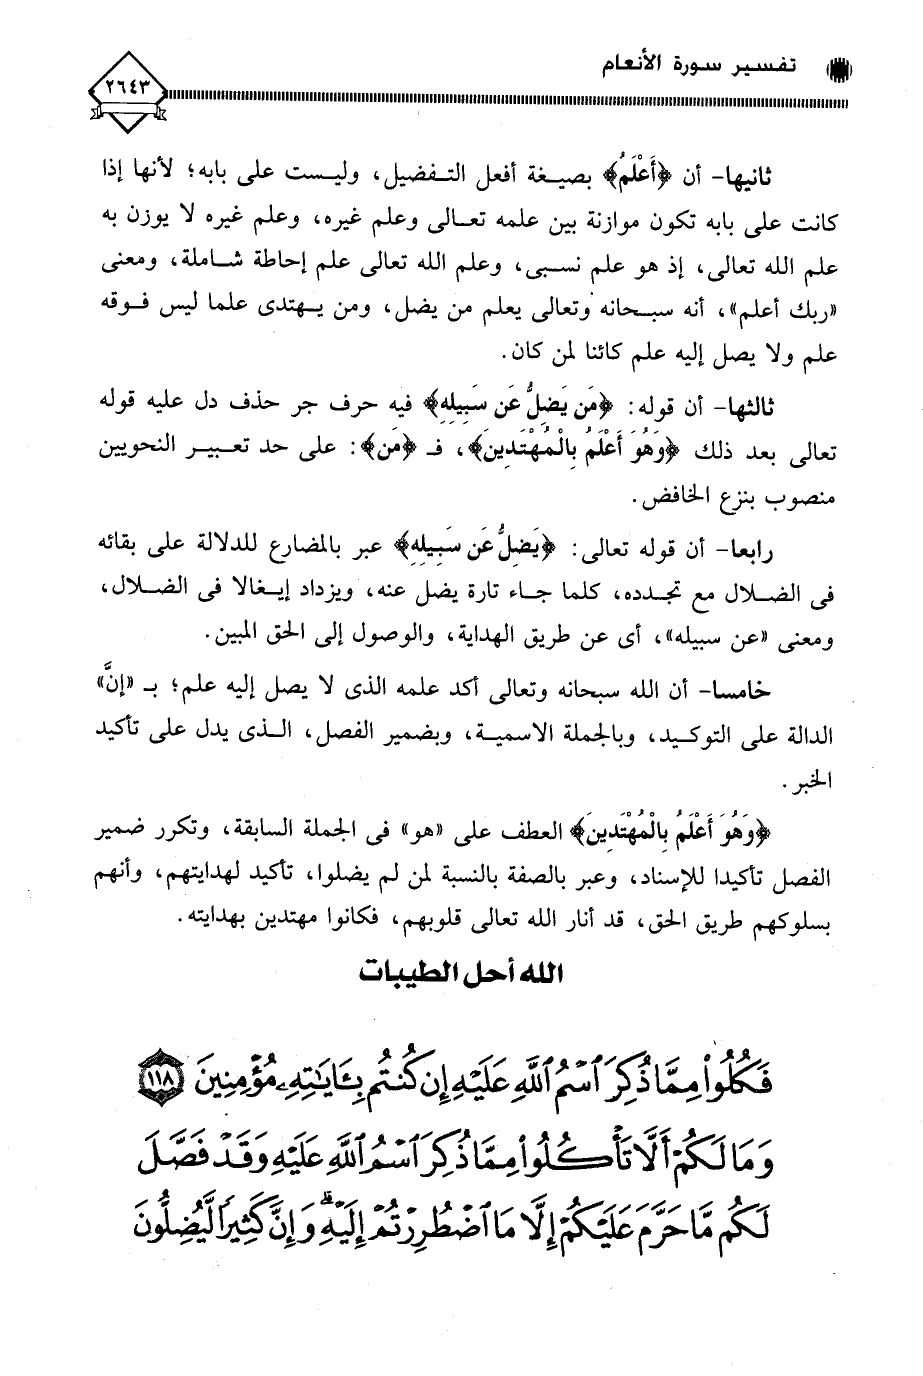 تفسير سورة الأنعام
٢٦٤٣
ثانيها- أن ﴿أَعْلَمُ﴾ بصيغة أفعل التفضيل، وليست على بابه؛ لأنها إذا
كانت على بابه تكون موازنة بين علمه تعالى وعلم غيره، وعلم غيره لا يوزن به
علم الله تعالى، إذ هو علم نسبى، وعلم الله تعالى علم إحاطة شاملة، ومعنى
«ربك أعلم»، أنه سبحانه وتعالى يعلم من يضل، ومن يهتدى علما ليس فوقه
علم ولا يصل إليه علم كائنا لمن كان.
ثالثها- أن قوله: ﴿مَن يَضِلُّ عَن سَبِيلِهِ﴾ فيه حرف جر حذف دل عليه قوله
تعالى بعد ذلك ﴿وَهُوَ أَعْلَمُ بِالْمُهْتَدِينَ﴾، فـ ﴿مَن﴾: على حد تعبير النحويين
منصوب بنزع الخافض.
رابعا- أن قوله تعالى: ﴿يَضِلُّ عَن سَبِيلِهِ﴾ عبر بالمضارع للدلالة على بقائه
فى الضلال مع تجدده، كلما جاء تارة يضل عنه، ويزداد إيغالا فى الضلال،
ومعنى «عن سبيله»، أى عن طريق الهداية، والوصول إلى الحق المبين.
خامسا- أن الله سبحانه وتعالى أكد علمه الذى لا يصل إليه علم؛ بـ «إنَّ»
الدالة على التوكيد، وبالجملة الاسمية، وبضمير الفصل، الذى يدل على تأكيد
الخبر.
﴿وَهُوَ أَعْلَمُ بِالْمُهْتَدِينَ﴾ العطف على «هو» فى الجملة السابقة، وتكرر ضمير
الفصل تأكيدا للإسناد، وعبر بالصفة بالنسبة لمن لم يضلوا، تأكيد لهدايتهم، وأنهم
بسلوكهم طريق الحق، قد أنار الله تعالى قلوبهم، فكانوا مهتدين بهدايته.
الله أحل الطيبات
فَكُلُوا۟ مِمَّا ذُكِرَ ٱسْمُ ٱللَّهِ عَلَيْهِ إِن كُنتُم بِـَٔايَـٰتِهِۦ مُؤْمِنِينَ ١١٨
وَمَا لَكُمْ أَلَّا تَأْكُلُوا۟ مِمَّا ذُكِرَ ٱسْمُ ٱللَّهِ عَلَيْهِ وَقَدْ فَصَّلَ
لَكُم مَّا حَرَّمَ عَلَيْكُمْ إِلَّا مَا ٱضْطُرِرْتُمْ إِلَيْهِ ۗ وَإِنَّ كَثِيرًا لَّيُضِلُّونَ